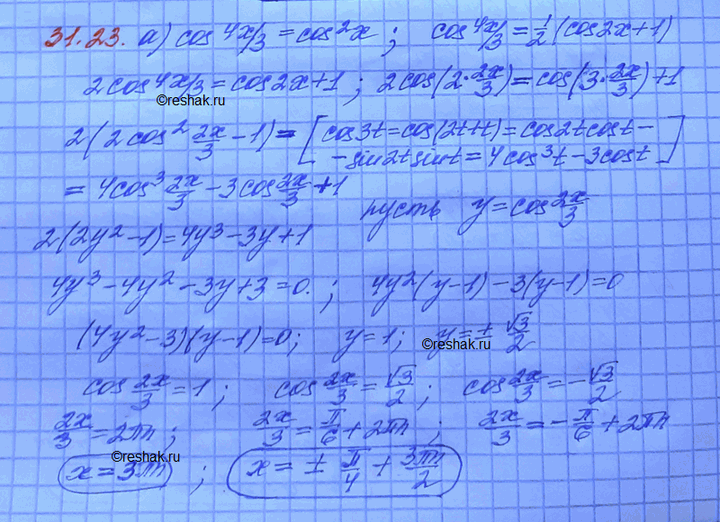 31.23. а) cos 4x/3 = cos²x ; cos 4x/3 = 1/2 (cos2x+1)
2cos 4x/3 = cos2x+1 ; 2cos(2·2x/3) = cos(3·2x/3)+1
©reshak.ru
2(2cos² 2x/3 - 1) = [cos3t = cos(2t+t) = cos2t cost -
- sin2t sint = 4cos³t - 3cost]
= 4cos³ 2x/3 - 3cos 2x/3 + 1
пусть y = cos 2x/3
2(2y²-1) = 4y³-3y+1
4y³-4y²-3y+3=0. ; 4y²(y-1)-3(y-1)=0
(4y²-3)(y-1)=0; y=1; y=± √3/2
©reshak.ru
cos 2x/3 = 1 ; cos 2x/3 = √3/2 ; cos 2x/3 = -√3/2
2x/3 = 2πn ; 2x/3 = π/6 + 2πn ; 2x/3 = -π/6 + 2πn
©reshak.ru
x = 3πn ; x = ± π/4 + 3πn/2